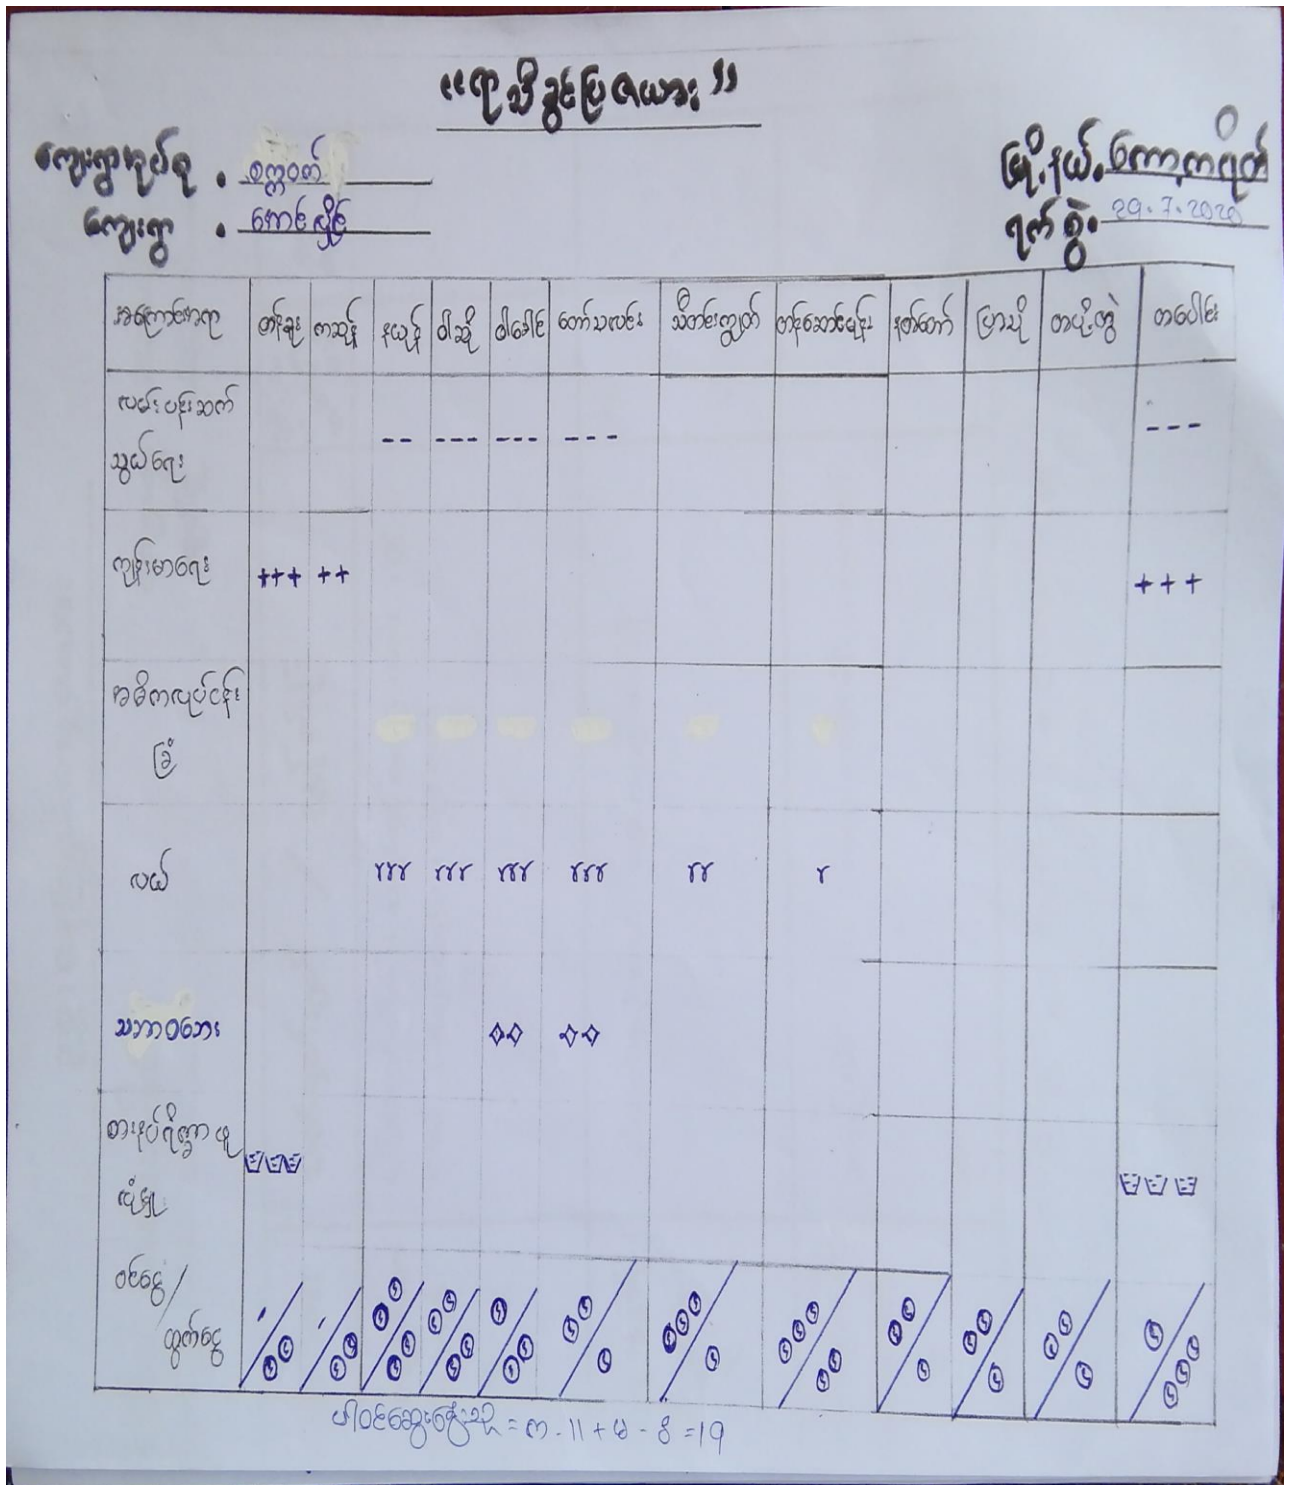 “ရာသီခွင်ပြဇယား”
ကျေးရွာအုပ်စု . စက္ကဝတ်
မြို့နယ်. ကော့ကရိတ်
ကျေးရွာ .
ရက်စွဲ. 29.7.2020
အကြောင်းအရာ တန်ခူး ကဆုန် နယုန် ဝါဆို ဝါခေါင် တော်သလင်း သီတင်းကျွတ် တန်ဆောင်မုန်း နတ်တော် ပြာသို တပို့တွဲ တပေါင်း
လမ်းပန်းဆက်
သွယ်ရေး -- --- --- --- ---
ကျန်းမာရေး +++ ++ +++
အဓိကလုပ်ငန်း
ခြံ
လယ်
သဘာဝဘေး
စားနပ်ရိက္ခာ
ဝင်ငွေ /
ထွက်ငွေ
ပါဝင်ဆွေးနွေးသူ = က - 11 + မ - 8 = 19